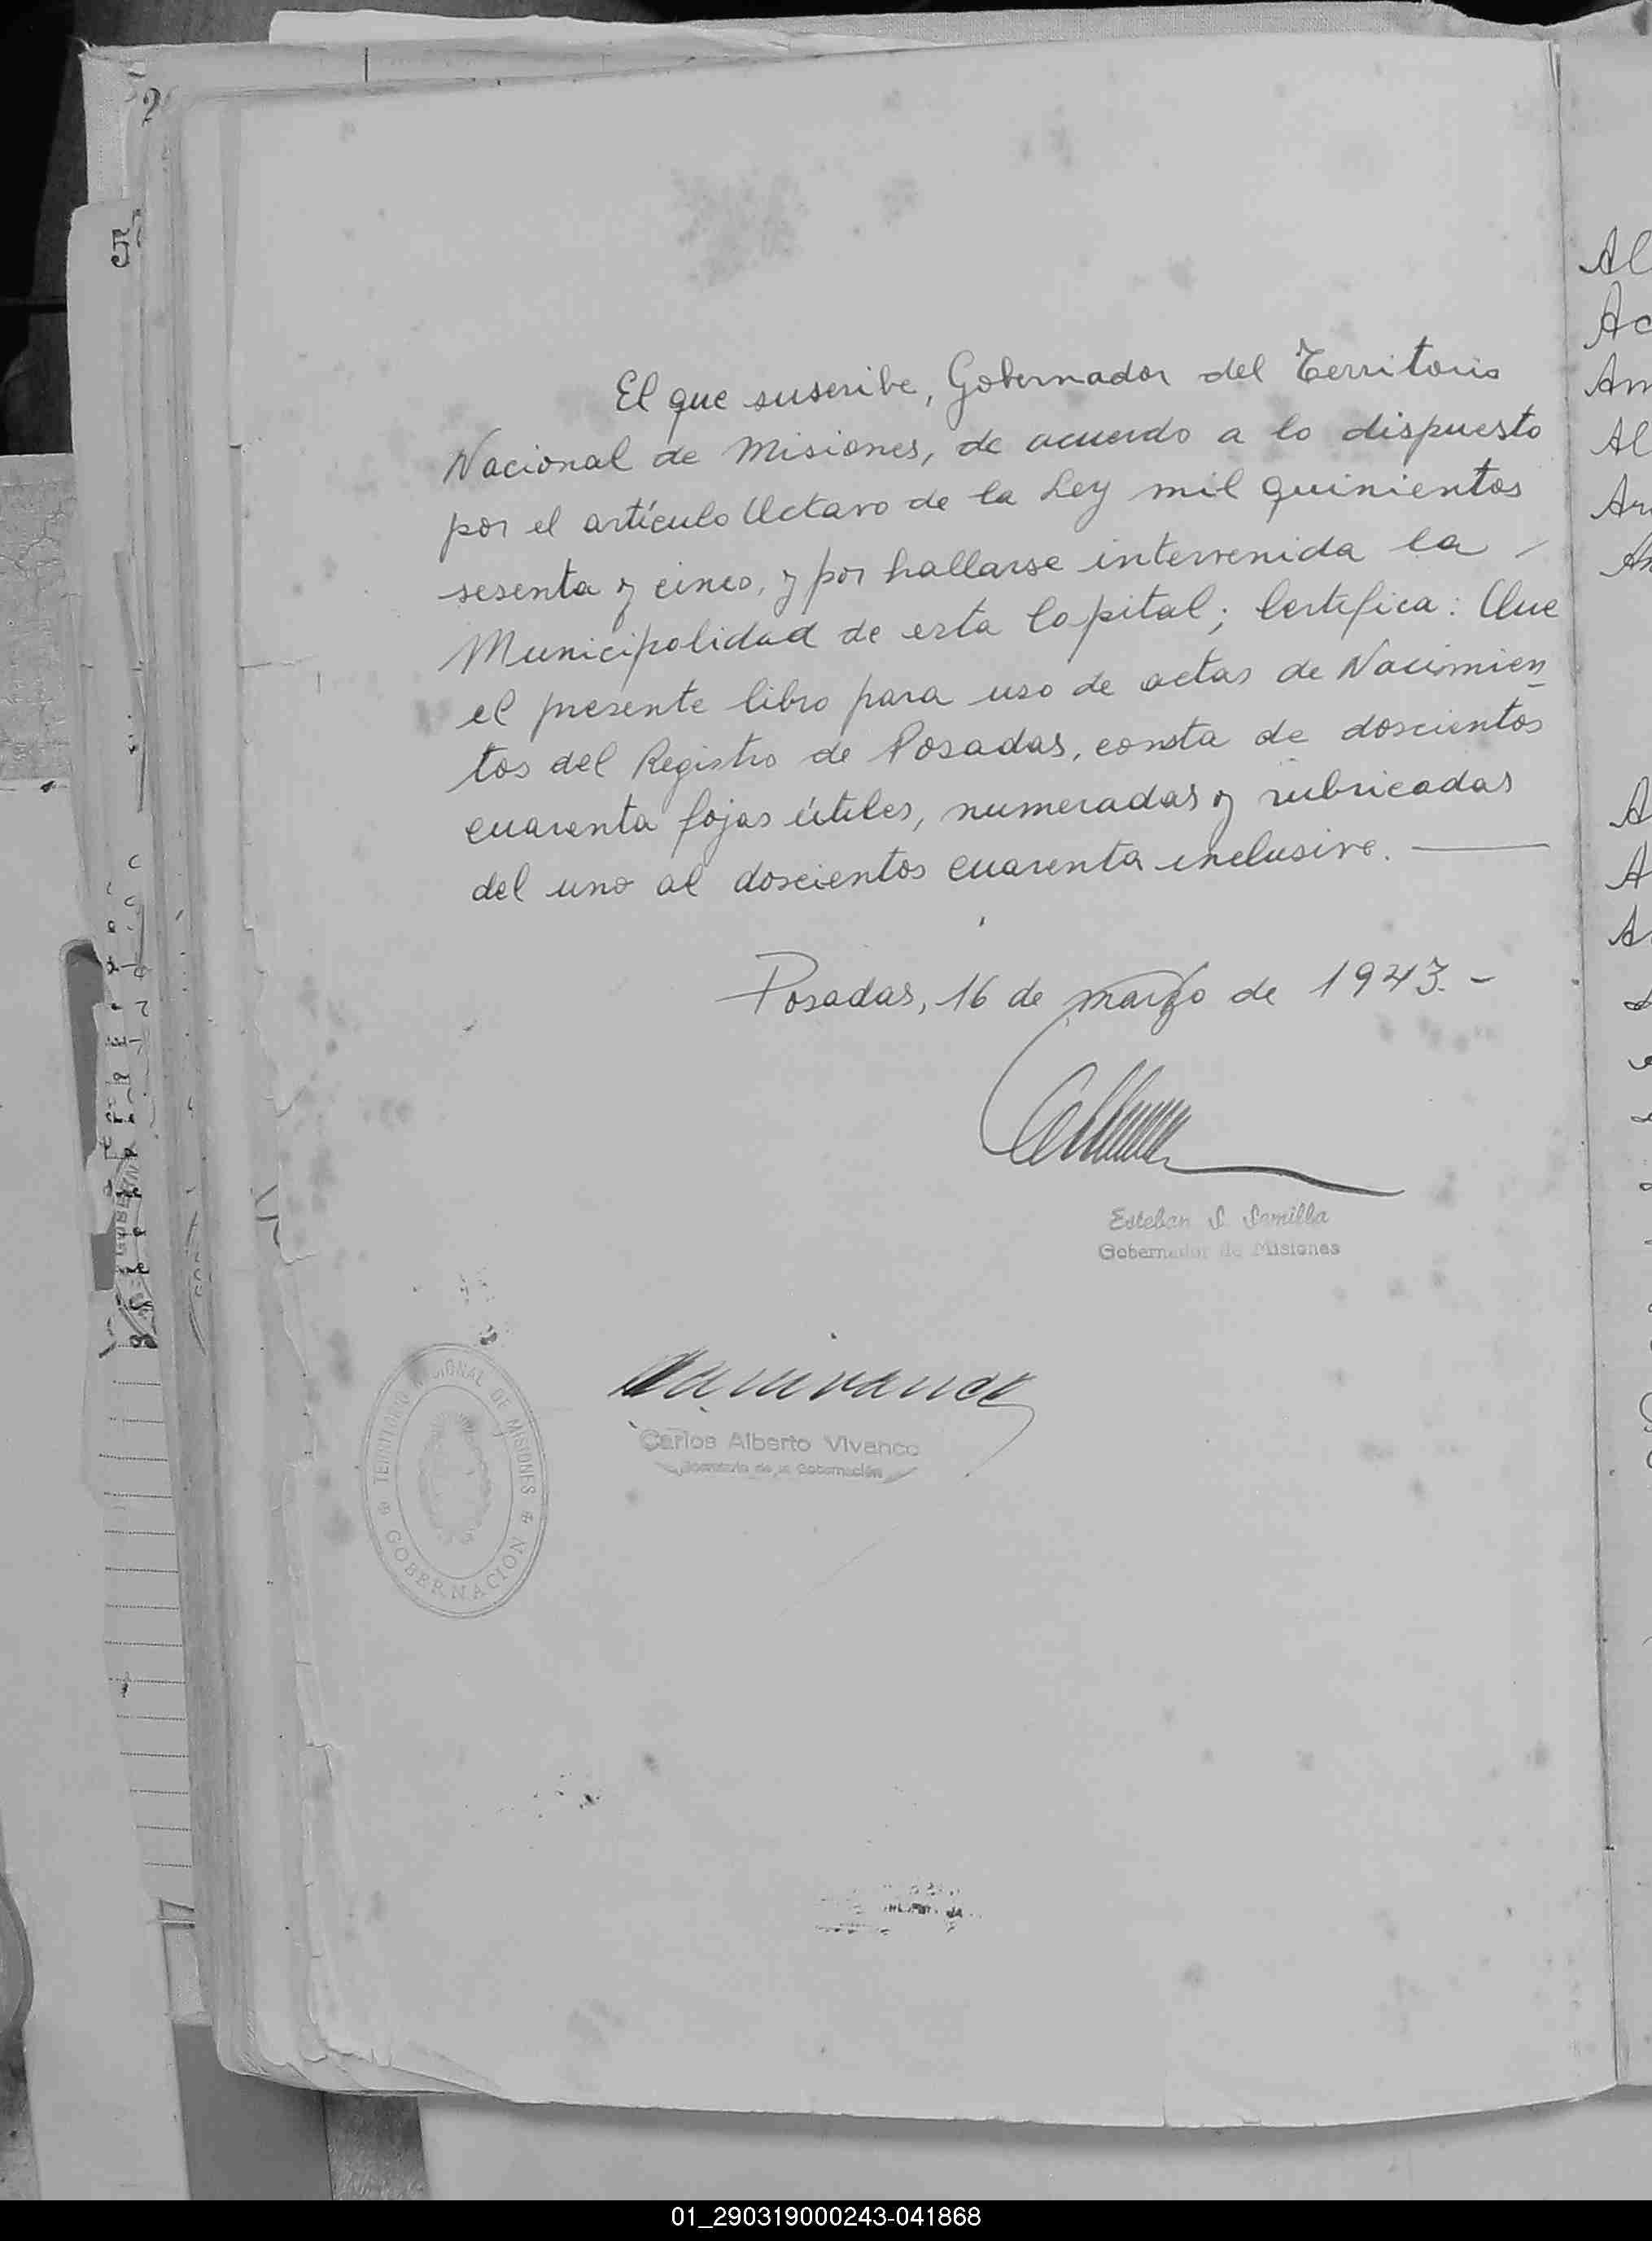 El que suscribe, Gobernador del Territorio
Nacional de Misiones, de acuerdo a lo dispuesto
por el artículo Octavo de la Ley mil quinientos
sesenta y cinco, y por hallarse intervenida la
Municipalidad de esta Capital; Certifica: Que
el presente libro para uso de actas de Nacimien
tos del Registro de Posadas, consta de doscientos
cuarenta fojas útiles, numeradas y rubricadas
del uno al doscientos cuarenta inclusive.
Posadas, 16 de marzo de 1943.-
Esteban S.
Gobernador de Misiones
Carlos Alberto Vivanco
Secretario de la Gobernación
TERRITORIO NACIONAL DE MISIONES
GOBERNACION
2
5
Al
Ac
Am
Al
Ar
A
A
A
01_290319000243-041868